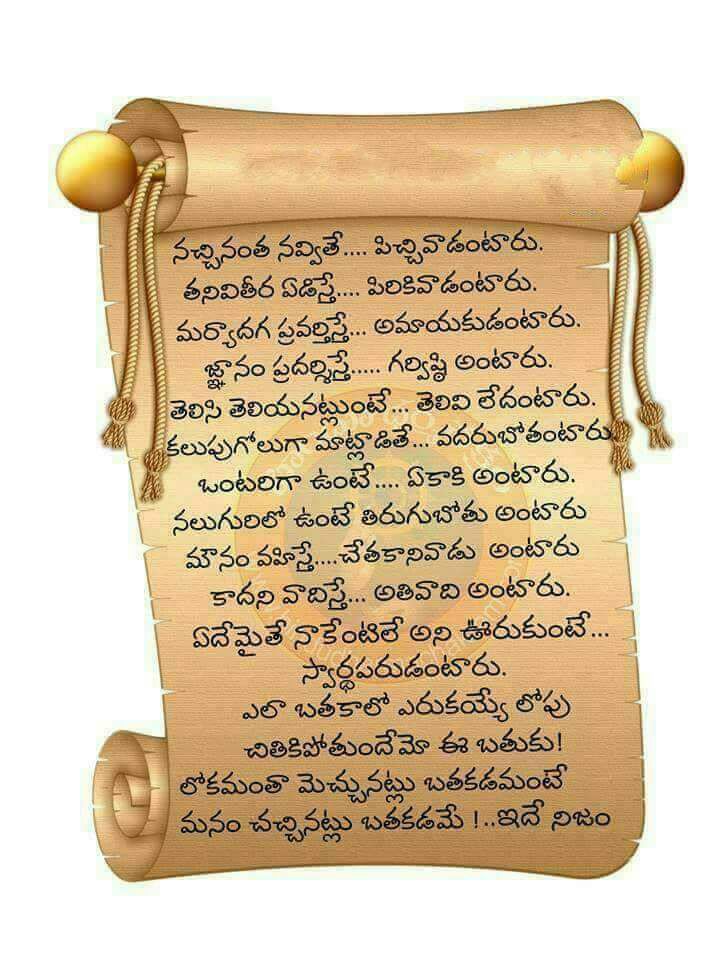 నచ్చినంత నవ్వితే.... పిచ్చివాడంటారు.
తనివితీర ఏడిస్తే.... పిరికివాడంటారు.
మర్యాదగ ప్రవర్తిస్తే... అమాయకుడంటారు.
జ్ఞానం ప్రదర్శిస్తే..... గర్విష్ఠి అంటారు.
తెలిసి తెలియనట్లుంటే... తెలివి లేదంటారు.
కలుపుగోలుగా మాట్లాడితే... వదరుబోతంటారు
ఒంటరిగా ఉంటే.... ఏకాకి అంటారు.
నలుగురిలో ఉంటే తిరుగుబోతు అంటారు
మౌనం వహిస్తే....చేతకానివాడు అంటారు
కాదని వాదిస్తే... అతివాది అంటారు.
ఏదేమైతే నాకేంటిలే అని ఊరుకుంటే...
స్వార్థపరుడంటారు.
ఎలా బతకాలో ఎరుకయ్యే లోపు
చితికిపోతుందేమో ఈ బతుకు!
లోకమంతా మెచ్చునట్లు బతకడమంటే
మనం చచ్చినట్లు బతకడమే !..ఇదే నిజం